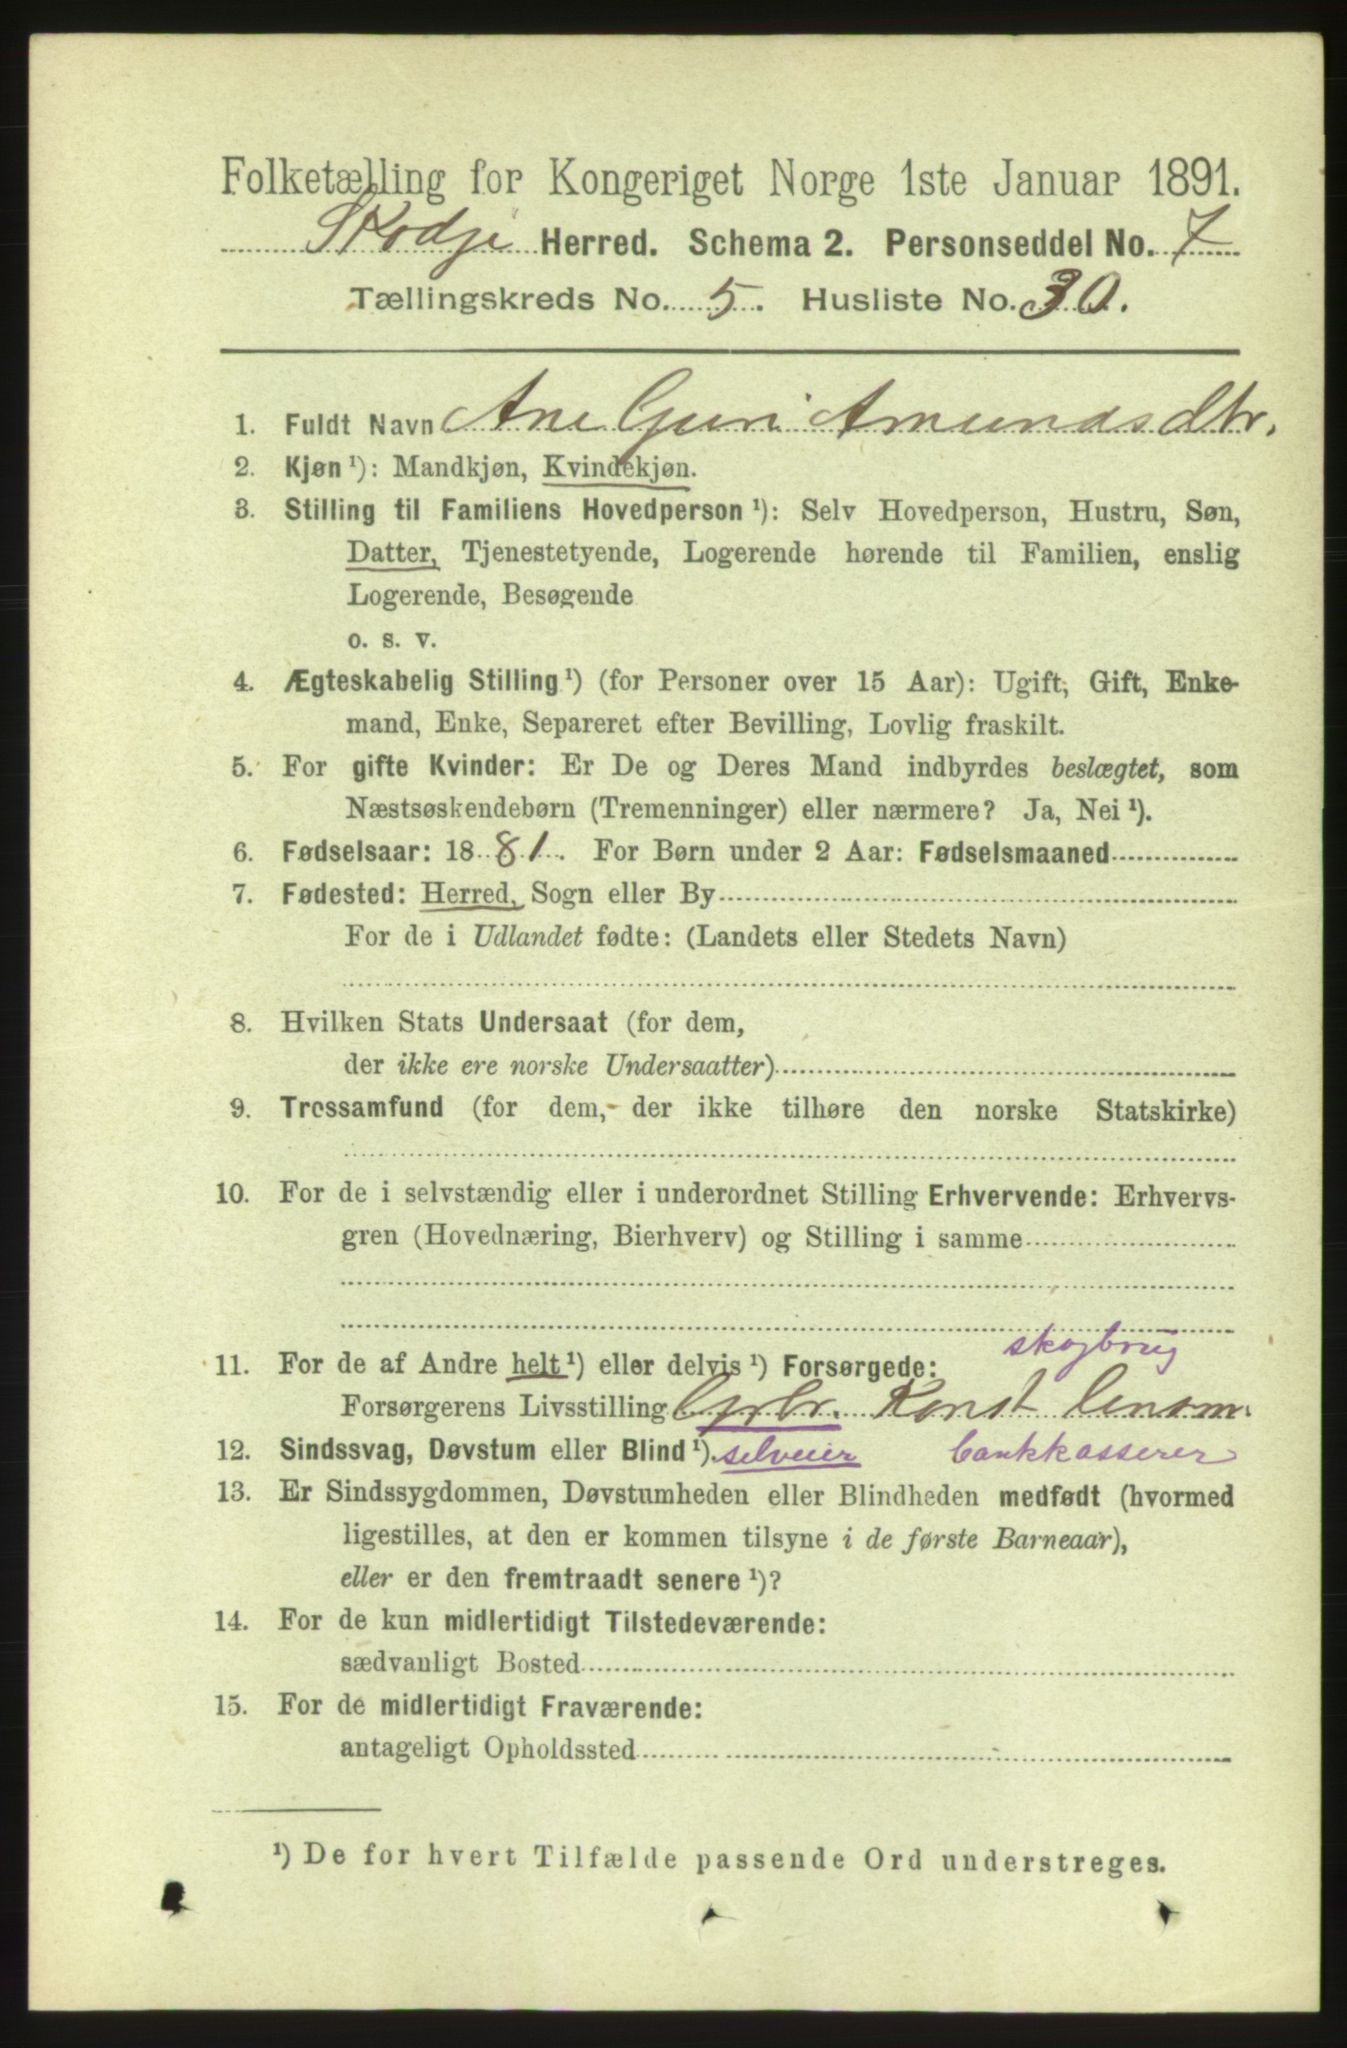 Folketælling for Kongeriget Norge 1ste Januar 1891.
Skodje Herred. Schema 2. Personseddel No. 7
Tællingskreds No. 5. Husliste No. 30.
1. Fuldt Navn Ane Guri Amundsdtr.
2. Kjøn ¹): Mandkjøn, Kvindekjøn.
3. Stilling til Familiens Hovedperson ¹): Selv Hovedperson, Hustru, Søn,
Datter, Tjenestetyende, Logerende hørende til Familien, enslig
Logerende, Besøgende
o. s. v.
4. Ægteskabelig Stilling ¹) (for Personer over 15 Aar): Ugift, Gift, Enke-
mand, Enke, Separeret efter Bevilling, Lovlig fraskilt.
5. For gifte Kvinder: Er De og Deres Mand indbyrdes beslægtet, som
Næstsøskendebørn (Tremenninger) eller nærmere? Ja, Nei ¹).
6. Fødselsaar: 1881. For Børn under 2 Aar: Fødselsmaaned
7. Fødested: Herred, Sogn eller By
For de i Udlandet fødte: (Landets eller Stedets Navn)
8. Hvilken Stats Undersaat (for dem,
der ikke ere norske Undersaatter)
9. Trossamfund (for dem, der ikke tilhøre den norske Statskirke)
10. For de i selvstændig eller i underordnet Stilling Erhvervende: Erhvervs-
gren (Hovednæring, Bierhverv) og Stilling i samme
skogbrug
11. For de af Andre helt ¹) eller delvis ¹) Forsørgede:
Forsørgerens Livsstilling Grbr. Konst
12. Sindssvag, Døvstum eller Blind ¹). selveier bankkasserer
13. Er Sindssygdommen, Døvstumheden eller Blindheden medfødt (hvormed
ligestilles, at den er kommen tilsyne i de første Barneaar),
eller er den fremtraadt senere ¹)?
14. For de kun midlertidigt Tilstedeværende:
sædvanligt Bosted
15. For de midlertidigt Fraværende:
antageligt Opholdssted
¹) De for hvert Tilfælde passende Ord understreges.